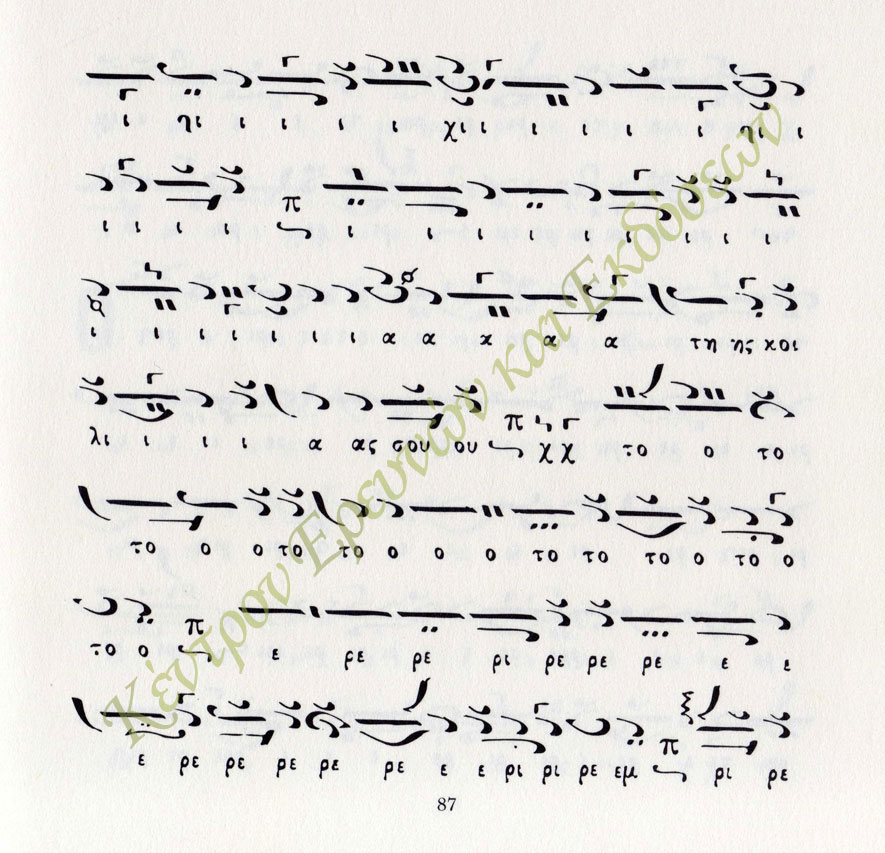 ι ηι ι ι ι ι ι χι ι ι ι ι ι ηι ι
ι ι ι ι π ι ι ι ι ι ι ι ι ι ι
ι ι ι ι ι ι ι α α α α α τη ης κοι
λι ι ι ι ι α ας σου ου π χχ το ο το
το ο ο το το ο ο ο το το το ο το ο
το ο π ρε ρε ρι ρε ρε ρε ε ε
ε ρε ρε ρε ρε ρε ε ε ρι ρι ρε εμ π ρι ρε
87
Κέντρον Ερευνών και Εκδόσεων